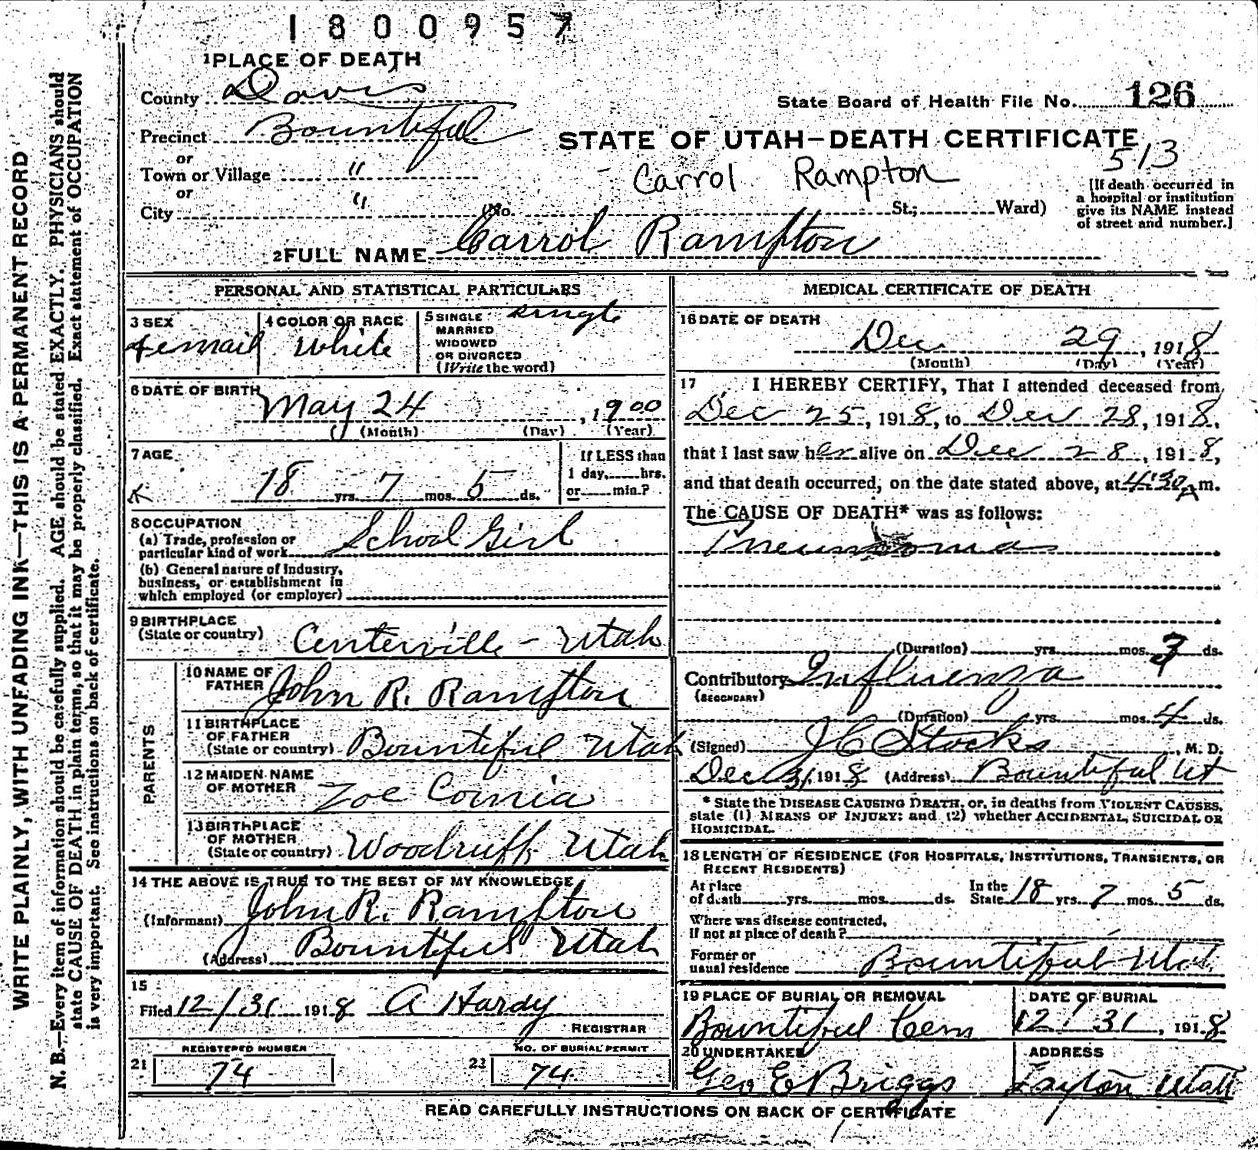 1800957
1 PLACE OF DEATH
County Davis
State Board of Health File No. 126
Precinct Bountiful
STATE OF UTAH—DEATH CERTIFICATE
or
Town or Village "
513
Carrol Rampton
or
City "
(No. St.; Ward)
[If death occurred in
a hospital or institution
give its NAME instead
of street and number.]
2 FULL NAME Carrol Rampton
PERSONAL AND STATISTICAL PARTICULARS
3 SEX
Femail
4 COLOR OR RACE
White
5 SINGLE
MARRIED
WIDOWED
OR DIVORCED
(Write the word)
single
6 DATE OF BIRTH
May 24, 1900
(Month) (Day) (Year)
7 AGE
18 yrs. 7 mos. 5 ds.
If LESS than
1 day, hrs.
or min.?
8 OCCUPATION
(a) Trade, profession or
particular kind of work School Girl
(b) General nature of Industry,
business, or establishment in
which employed (or employer)
9 BIRTHPLACE
(State or country) Centerville - Utah
PARENTS
10 NAME OF
FATHER John R. Rampton
11 BIRTHPLACE
OF FATHER
(State or country) Bountiful Utah
12 MAIDEN NAME
OF MOTHER Zoe Cornia
13 BIRTHPLACE
OF MOTHER
(State or country) Woodruff Utah
14 THE ABOVE IS TRUE TO THE BEST OF MY KNOWLEDGE
(Informant) John R. Rampton
(Address) Bountiful Utah
15
Filed 12/31 1918 A Hardy
REGISTRAR
REGISTERED NUMBER
21 74
NO. OF BURIAL PERMIT
22 74
MEDICAL CERTIFICATE OF DEATH
16 DATE OF DEATH
Dec 29, 1918
(Month) (Day) (Year)
17 I HEREBY CERTIFY, That I attended deceased from
Dec 25, 1918, to Dec 28, 1918,
that I last saw her alive on Dec 28, 1918,
and that death occurred, on the date stated above, at 4:30 A m.
The CAUSE OF DEATH* was as follows:
(Duration) yrs. mos. 3 ds.
Contributory Influenza
(SECONDARY)
(Duration) yrs. mos. 4 ds.
(Signed) J C Stocks, M. D.
Dec 31, 1918 (Address) Bountiful Ut
* State the DISEASE CAUSING DEATH, or, in deaths from VIOLENT CAUSES,
state (1) MEANS OF INJURY; and (2) whether ACCIDENTAL, SUICIDAL OR
HOMICIDAL.
18 LENGTH OF RESIDENCE (FOR HOSPITALS, INSTITUTIONS, TRANSIENTS, OR
RECENT RESIDENTS)
At place
of death yrs. mos. ds.
In the
State 18 yrs. 7 mos. 5 ds.
Where was disease contracted,
If not at place of death?
Former or
usual residence Bountiful Utah
19 PLACE OF BURIAL OR REMOVAL
Bountiful Cem
DATE OF BURIAL
12/31, 1918
20 UNDERTAKER
Geo E Briggs
ADDRESS
Layton Utah
READ CAREFULLY INSTRUCTIONS ON BACK OF CERTIFICATE
WRITE PLAINLY, WITH UNFADING INK—THIS IS A PERMANENT RECORD
N. B.—Every item of information should be carefully supplied. AGE should be stated EXACTLY. PHYSICIANS should
state CAUSE OF DEATH in plain terms, so that it may be properly classified. Exact statement of OCCUPATION
is very important. See instructions on back of certificate.